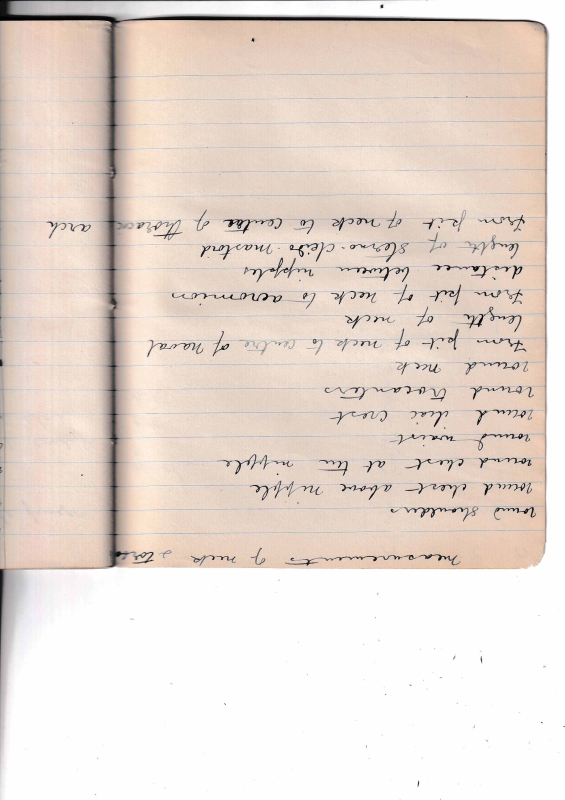 measurements of neck & torso
round shoulders
round chest above nipple
round chest at the nipple
round waist
round iliac crest
round trocanters
round neck
From pit of neck to centre of naval
length of neck
From pit of neck to acromion
distance between nipples
length of sterno-cleido-mastoid
From pit of neck to centre of thoracic arch